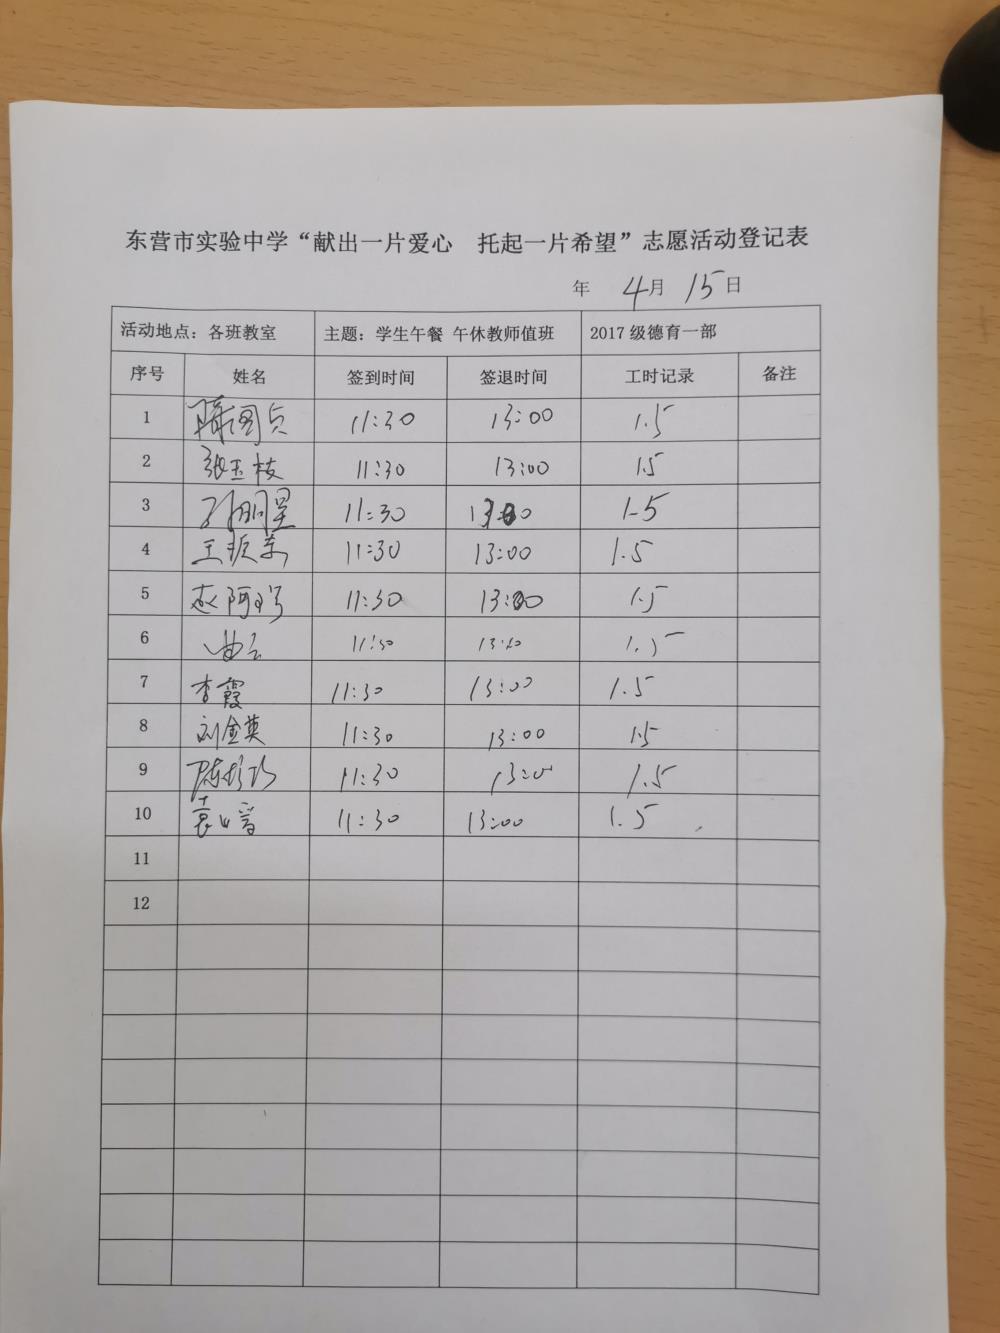 东营市实验中学“献出一片爱心 托起一片希望”志愿活动登记表
年 4月 15日
活动地点：各班教室 主题：学生午餐 午休教师值班 2017 级德育一部
序号 姓名 签到时间 签退时间 工时记录 备注
1 11:30 13:00 1.5
2 张玉枝 11:30 13:00 1.5
3 孙明星 11:30 13:00 1.5
4 王振东 11:30 13:00 1.5
5 赵阿 11:30 13:00 1.5
6 曲云 11:30 13:00 1.5
7 李霞 11:30 13:00 1.5
8 刘金英 11:30 13:00 1.5
9 陈 11:30 13:00 1.5
10 11:30 13:00 1.5
11
12